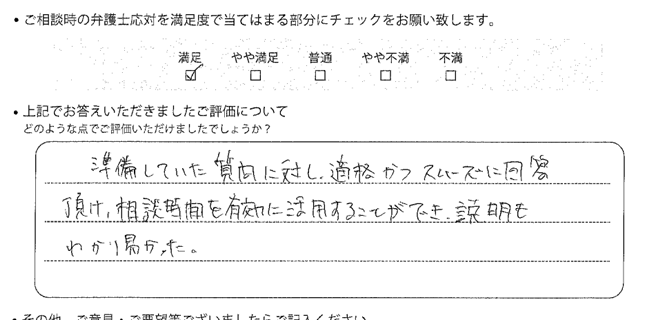 • ご相談時の弁護士応対を満足度で当てはまる部分にチェックをお願い致します。
満足 やや満足 普通 やや不満 不満
☑ ☐ ☐ ☐ ☐
• 上記でお答えいただきましたご評価について
どのような点でご評価いただけましたでしょうか？
準備していた質問に対し、適格かつスムーズに回答
頂け、相談時間を有効に活用することができ、説明も
わかり易かった。
• その他、ご意見・ご要望等ございましたらご記入ください